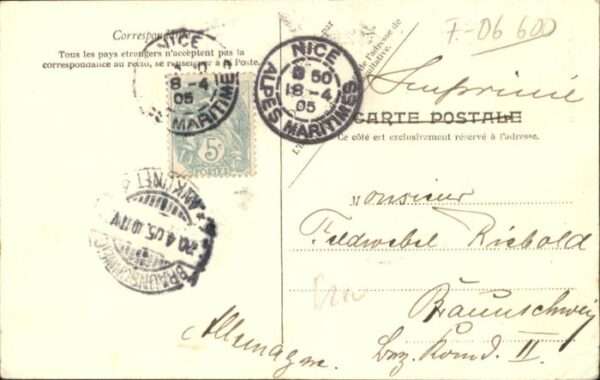 Correspondance
Tous les pays étrangers n'acceptent pas la
correspondance au recto, se renseigner à la Poste.
NICE
8 -4
05
MARITIMES
NICE
8 50
18 -4
05
ALPES MARITIMES
5c
POSTES
F-06 600
Imprimé
CARTE POSTALE
Ce côté est exclusivement réservé à l'adresse.
Monsieur
Feldwebel Riebold
Braunschweig
Allemagne.
II
20.4.05.
BRAUNSCHWEIG